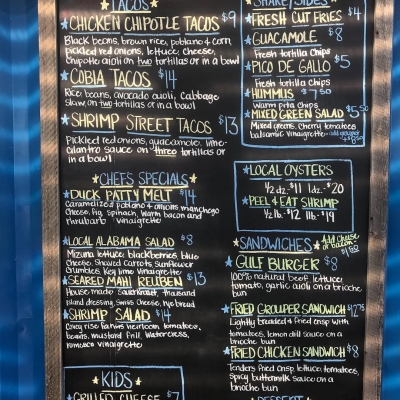 TACOS
★CHICKEN CHIPOTLE TACOS $9
Black beans, brown rice, poblano & corn,
pickled red onions, lettuce, cheese,
chipotle aioli on two tortillas or in a bowl
★COBIA TACOS $14
Rice, beans, avocado aioli, cabbage
slaw, on two tortillas or in a bowl
★SHRIMP STREET TACOS $13
Pickled red onions, guacamole, lime-
cilantro sauce on three tortillas or
in a bowl
★CHEFS SPECIALS★
★DUCK PATTY MELT $14
Caramelized poblano & onions, manchego
cheese, fig, spinach, warm bacon and
rhubarb vinaigrette
★LOCAL ALABAMA SALAD $8
Mizuna lettuce, blackberries, blue
cheese, shaved carrots, sunflower
crumbles, key lime vinaigrette
★SEARED MAHI REUBEN $13
House made sauerkraut, thousand
island dressing, swiss cheese, rye bread
★SHRIMP SALAD $14
rise farms heirloom tomatoes,
beans, mustard frill, watercress,
romesco vinaigrette
★KIDS
GRILLED CHEESE $7
SHARE/SIDES
★FRESH CUT FRIES $4
★GUACAMOLE $8
Fresh tortilla chips
★PICO DE GALLO $5
Fresh tortilla chips
★HUMMUS $7.50
Warm pita chips
★MIXED GREEN SALAD $5.50
Mixed greens, cherry tomatoes
balsamic vinaigrette - add
★LOCAL OYSTERS
1/2 dz. $11 1dz. $20
★PEEL & EAT SHRIMP
1/2 lb. $12 1lb. $19
SANDWICHES ★Add cheese
or bacon
★GULF BURGER $8
100% natural beef, lettuce,
tomato, garlic aioli on a brioche
bun
★FRIED GROUPER SANDWICH $12.75
Lightly breaded & fried crisp with
tomatoes, lemon dill sauce on a
brioche bun
★FRIED CHICKEN SANDWICH $8
Tenders fried crisp, lettuce, tomatoes,
spicy buttermilk sauce on a
brioche bun
DESSERT